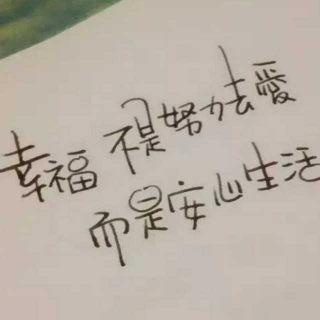 幸福 不是努力去愛
而是安心生活